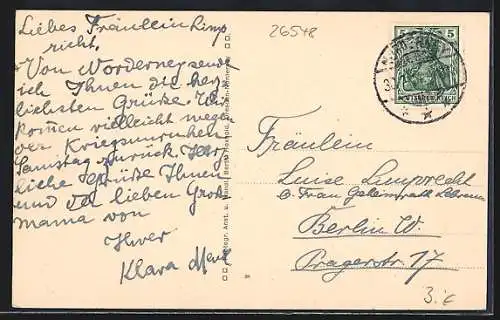 Liebes Fräulein Limp
richt.
Von Norderney sende
ich Ihnen die herz
lichsten Grüße. Wir
kommen vielleicht wege
der Kriegsunruhen
Samstag zurück. Herz
liche Grüße Ihnen
und der lieben Groß
mama von
Ihrer
Klara
26548
5 5
Fräulein
Luise Limprecht
b. Frau Geheimrath
Berlin W.
Pragerstr. 17
3.-€